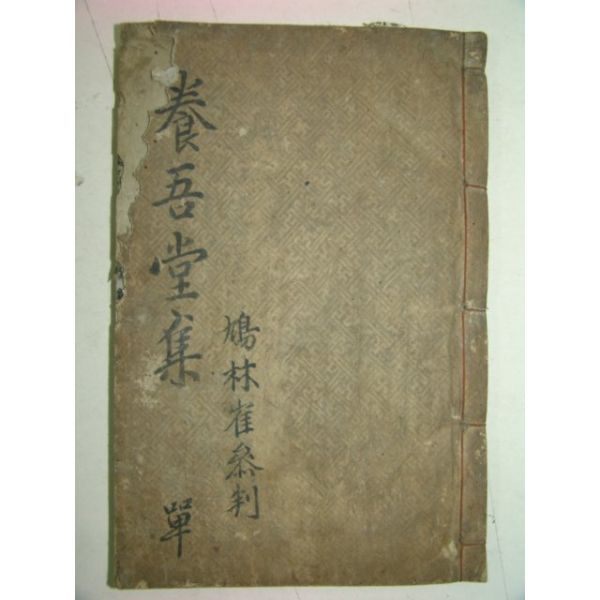 養吾堂集 單
鳩林崔參判